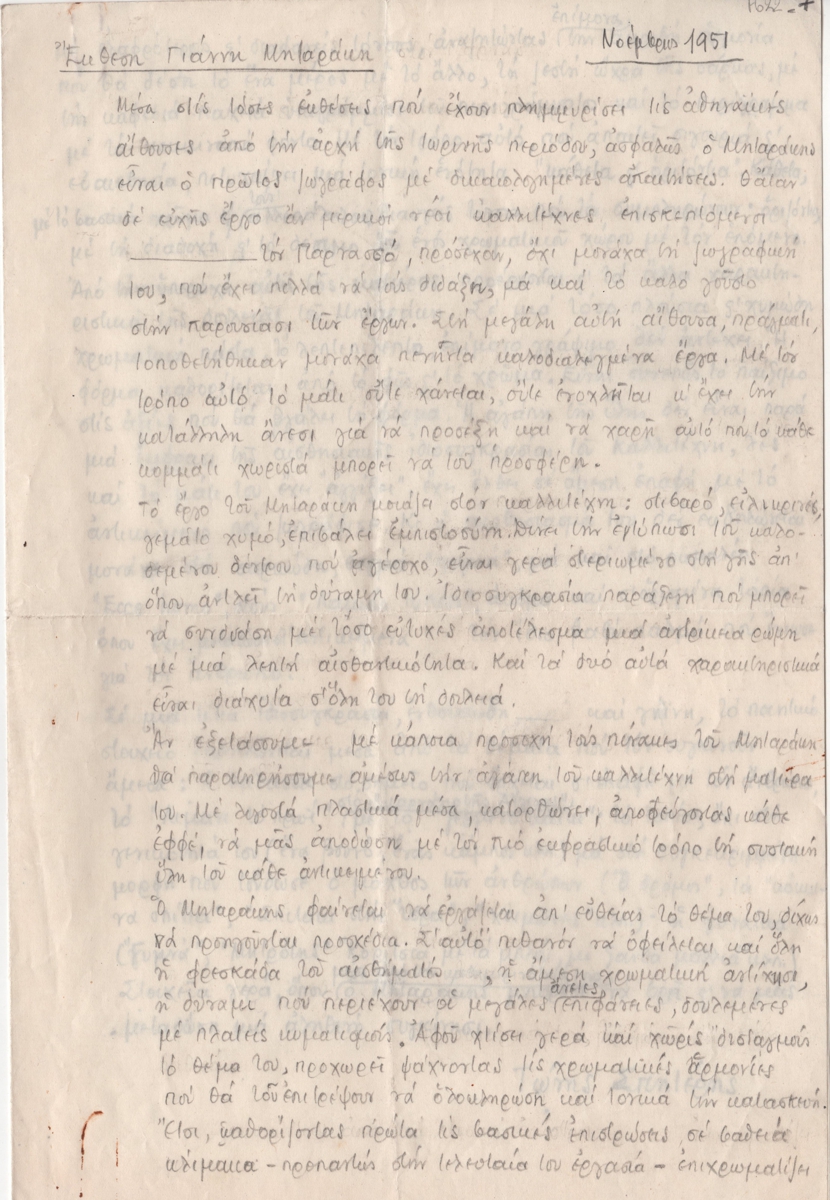 Ἔκθεση Γιάννη Μηταράκη
Νοέμβρης 1951
Μέσα στὶς τόσες ἐκθέσεις ποὺ ἔχουν πλημμυρίσει τὶς ἀθηναϊκὲς
αἴθουσες ἀπὸ τὴν ἀρχὴ τῆς τωρινῆς περιόδου, ἀσφαλῶς ὁ Μηταράκης
εἶναι ὁ πρῶτος ζωγράφος μὲ δικαιολογημένες ἀπαιτήσεις. Θἄταν
δὲ εὐχῆς ἔργο ἂν μερικοὶ νέοι καλλιτέχνες ἐπισκεπτόμενοι
τὸν Παρνασσό, πρόσεχαν, ὄχι μονάχα τὴ ζωγραφική
του, ποὺ ἔχει πολλὰ νὰ τοὺς διδάξῃ, μὰ καὶ τὸ καλὸ γοῦστο
στὴν παρουσίασι τῶν ἔργων. Στὴ μεγάλη αὐτὴ αἴθουσα, πράγματι,
τοποθετήθηκαν μονάχα πενῆντα καλοδιαλεγμένα ἔργα. Μὲ τὸν
τρόπο αὐτό, τὸ μάτι οὔτε χάνεται, οὔτε ἐνοχλῆται κ' ἔχει τὴν
κατάλληλη ἄνεσι γιὰ νὰ προσέξῃ καὶ νὰ χαρῇ αὐτὸ ποὺ τὸ κάθε
κομμάτι χωριστὰ μπορεῖ νὰ τοῦ προσφέρῃ.
Τὸ ἔργο τοῦ Μηταράκη μοιάζει στὸν καλλιτέχνη: στιβαρό, εἰλικρινές,
γεμάτο χυμό, ἐπιβάλει ἐμπιστοσύνη. Δίνει τὴν ἐντύπωσι τοῦ καλο-
δεμένου δέντρου ποὺ ἀγέροχο, εἶναι γερὰ στεριωμένο στὴ γῆς ἀπ'
ὅπου ἀντλεῖ τὴ δύναμη του. Ἰδιοσυγκρασία παράξενη ποὺ μπορεῖ
νὰ συνδυάσῃ μὲ τόσο εὐτυχὲς ἀποτέλεσμα μιὰ ἀντρίκεια ρώμη
μὲ μιὰ λεπτὴ αἰσθαντικότητα. Καὶ τὰ δυὸ αὐτὰ χαρακτηριστικὰ
εἶναι διάχυτα σ' ὅλη του τὴ δουλειά.
Ἂν ἐξετάσουμε μὲ κάποια προσοχὴ τοὺς πίνακες τοῦ Μηταράκη
θὰ παρατηρήσουμε ἀμέσως τὴν ἀγάπη τοῦ καλλιτέχνη στὴ ματιέρα
του. Μὲ λιγοστὰ πλαστικὰ μέσα, κατορθώνει, ἀποφεύγοντας κάθε
ἐφφέ, νὰ μᾶς ἀποδώσῃ μὲ τὸν πιὸ ἐκφραστικὸ τρόπο τὴ συστακή
ὕλη τοῦ κάθε ἀντικειμένου.
Ὁ Μηταράκης φαίνεται νὰ ἐργάζεται ἀπ' εὐθείας τὸ θέμα του, δίχως
νὰ προηγοῦνται προσχέδια. Σ' αὐτὸ πιθανὸν νὰ ὀφείλεται καὶ ὅλη
ἡ φρεσκάδα τοῦ αἰσθήματός, ἡ ἄμεση χρωματικὴ ἀντίχησι,
ἡ δύναμι ποὺ περιέχουν οἱ μεγάλες ἐπιφάνειες, δουλεμένες
μὲ πλατεῖς κωματισμούς. Ἀφοῦ χτίσει γερὰ καὶ χωρὶς δισταγμοὺς
τὸ θέμα του, προχωρεῖ ψάχνοντας τὶς χρωματικὲς ἁρμονίες
ποὺ θὰ τοῦ ἐπιτρέψουν νὰ ὁλοκληρώσῃ καὶ τονικὰ τὴν κατασκευή.
Ἔτσι, καθορίζοντας πρῶτα τὶς βασικὲς ἐπιστρώσεις, σὲ βαθειὰ
κλίμακα – προπαντὸς στὴν τελευταία του ἐργασία – ἐπιχρωματίζει